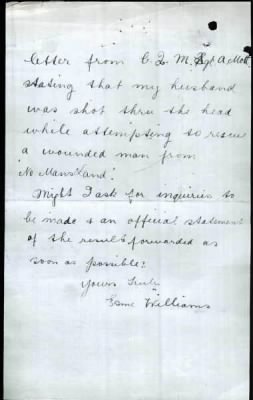 letter from C. Q. M. Sgt A. Mott
stating that my husband
was shot thru the head
while attempting to rescue
a wounded man from
"No Man's Land."
Might I ask for inquiries to
be made & an official statement
of the result forwarded as
soon as possible?
Yours truly
Esme Williams